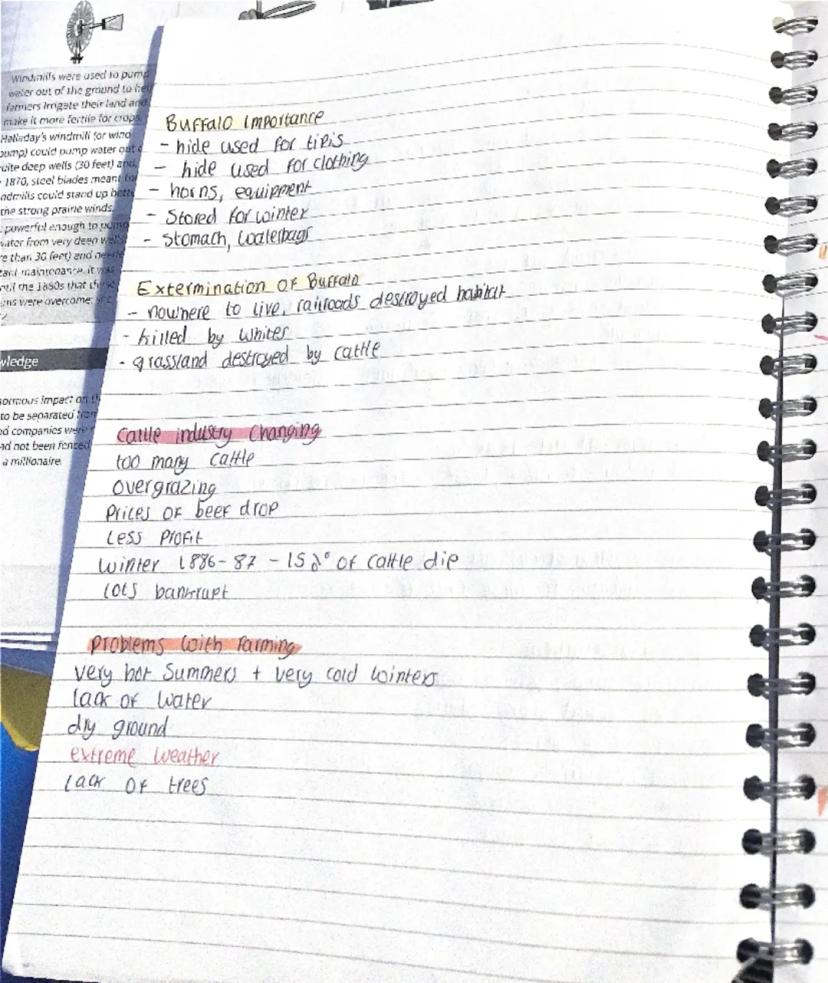 Windmills were used to pump
water out of the ground to
farmers irrigate their land and
make it more fertile for crops.
Halladay's windmill (or wind
pump) could pump water out
quite deep wells (30 feet) and
1870, steel blades meant
windmills could stand up
the strong prairie winds.
powerful enough to pump
water from very deep
than 30 feet) and
maintenance. It was
until the 1880s that
were overcome.
wledge
normous impact on
to be separated from
companies were
ad not been fenced
a millionaire.
Buffalo importance
- hide used for tipis
- hide used for clothing
- horns, equipment
- Stored for winter
- Stomach, waterbags
Extermination of Buffalo
- nowhere to live, railroads destroyed habitat
- killed by whites
- grassland destroyed by cattle
Cattle industry Changing
too many cattle
overgrazing
Prices of beef drop
Less profit
Winter 1886-87 - 15% of cattle die
lots bankrupt
Problems with Farming
very hot summers + very cold winters
lack of water
dry ground
extreme weather
lack of trees